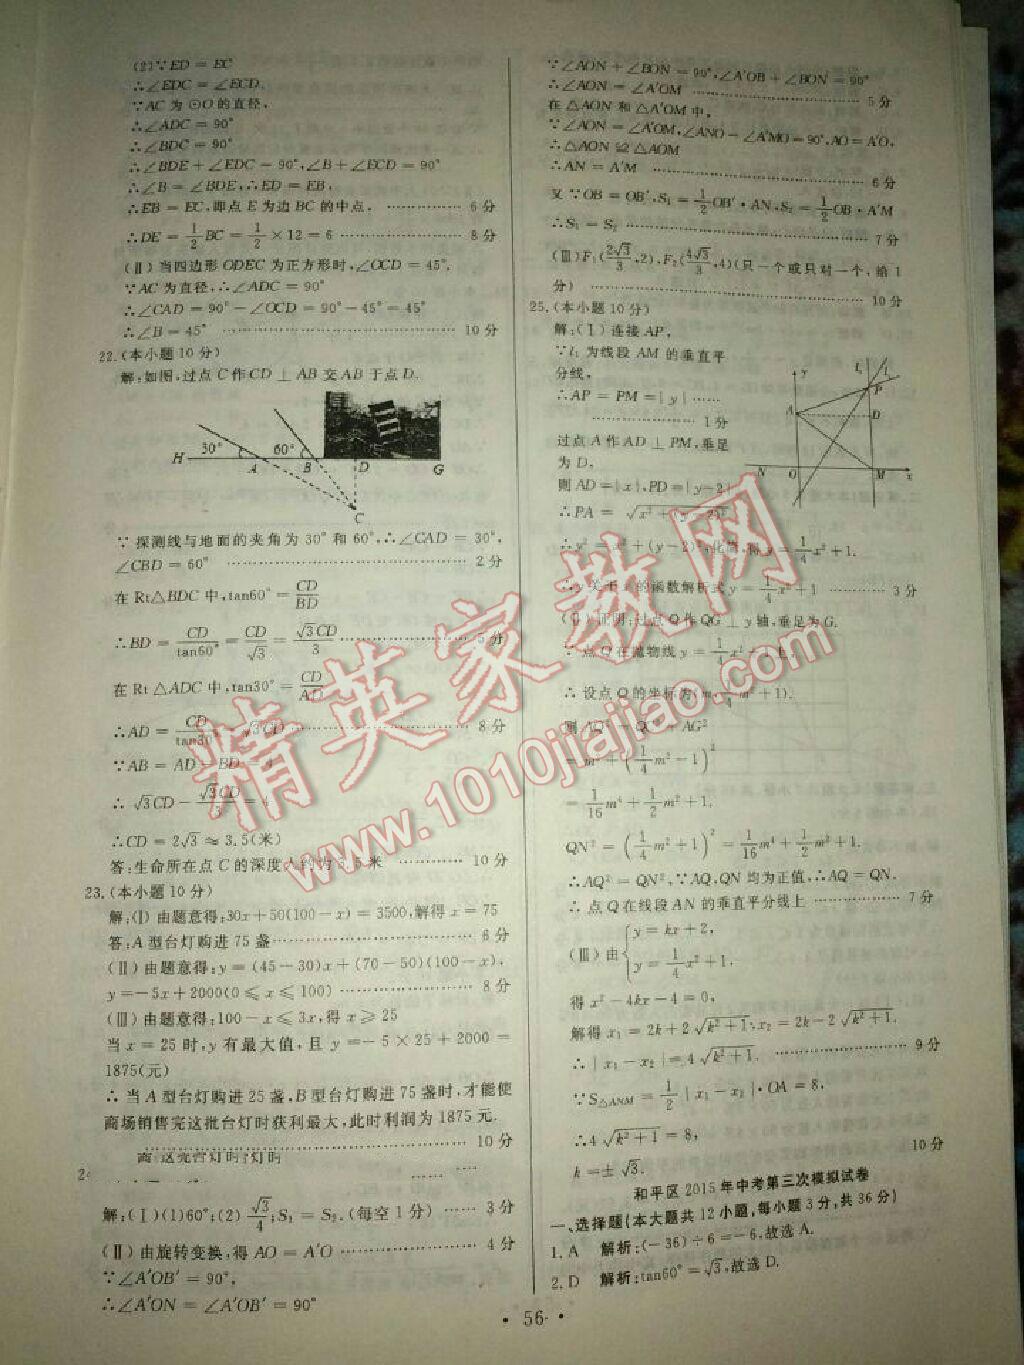 (2)∵ED=EC
∴∠EDC=∠ECD.
∵AC为⊙O的直径,
∴∠ADC=90°
∴∠BDC=90°
∴∠BDE+∠EDC=90°,∠B+∠ECD=90°
∴∠B=∠BDE,∴ED=EB,
∴EB=EC,即点E为边BC的中点. …………… 6分
∴DE=1/2BC=1/2×12=6 …………………… 8分
(Ⅱ)当四边形ODEC为正方形时,∠OCD=45°.
∵AC为直径,∴∠ADC=90°
∴∠CAD=90°-∠OCD=90°-45°=45°
∴∠B=45° ……………………………… 10分
22.(本小题10分)
解:如图,过点C作CD⊥AB交AB于点D.
H 30° A 60° B D G
C
∵探测线与地面的夹角为30°和60°,∴∠CAD=30°,
∠CBD=60° ………………………………… 2分
在Rt△BDC中,tan60°=CD/BD
∴BD=CD/tan60°=CD/√3=√3CD/3 ………………… 5分
在Rt△ADC中,tan30°=CD/AD
∴AD=CD/tan30°=√3CD …………………… 8分
∵AB=AD-BD=4
∴√3CD-√3CD/3=4
∴CD=2√3≈3.5(米)
答:生命所在点C的深度大约为3.5米 ………… 10分
23.(本小题10分)
解:(Ⅰ)由题意得:30x+50(100-x)=3500,解得x=75
答:A型台灯购进75盏………………………… 6分
(Ⅱ)由题意得:y=(45-30)x+(70-50)(100-x),
y=-5x+2000(0⩽x⩽100) ………………… 8分
(Ⅲ)由题意得:100-x⩽3x,得x⩾25
当x=25时,y有最大值,且y=-5×25+2000=
1875(元)
∴当A型台灯购进25盏,B型台灯购进75盏时,才能使
商场销售完这批台灯时获利最大,此时利润为1875元.
……………………………………………… 10分
解:(Ⅰ)(1)60°;(2)√3/4;S₁=S₂.(每空1分) …… 3分
(Ⅱ)由旋转变换,得AO=A′O ……………… 4分
∵∠A′OB′=90°,
∴∠A′ON=∠A′OB′=90°
∵∠AON+∠BON=90°,∠A′OB+∠BON=90°
∴∠AON=∠A′OM ………………………… 5分
在△AON和△A′OM中,
∵∠AON=∠A′OM,∠ANO=∠A′MO=90°,AO=A′O,
∴△AON≌△AOM
∴AN=A′M ………………………………… 6分
又∵OB=OB′,S₁=1/2OB′·AN,S₂=1/2OB·A′M
∴S₁=S₂ …………………………………… 7分
(Ⅲ)F₁(2√3/3,2),F₂(4√3/3,4)(只一个或只对一个,给1
分) …………………………………………… 10分
25.(本小题10分)
解:(Ⅰ)连接AP,
∵l₁为线段AM的垂直平
分线,
∴AP=PM=|y| ……
…………………… 1分
过点A作AD⊥PM,垂足
为D,
则AD=|x|,PD=|y-2|
y l₁ l₂ P A D N O M x
∴PA=√x²+(y-2)²
∴y²=x²+(y-2)²,化简,得y=1/4x²+1.
∴y关于x的函数解析式y=1/4x²+1 ………… 3分
(Ⅱ)证明:过点Q作QG⊥y轴,垂足为G.
∵点Q在抛物线y=1/4x²+1上,
∴设点Q的坐标为(m,1/4m²+1).
则AQ²=QG²+AG²
=m²+(1/4m²-1)²
=1/16m⁴+1/2m²+1.
QN²=(1/4m²+1)²=1/16m⁴+1/2m²+1.
∴AQ²=QN²,∵AQ,QN均为正值,∴AQ=QN.
∴点Q在线段AN的垂直平分线上 ……………… 7分
(Ⅲ)由{y=kx+2, y=1/4x²+1.
得x²-4kx-4=0,
解得x₁=2k+2√k²+1,x₂=2k-2√k²+1.
∴|x₁-x₂|=4√k²+1. …………………… 9分
∵S△ANM=1/2|x₁-x₂|·OA=8,
∴4√k²+1=8,
k=±√3. 10分
和平区2015年中考第三次模拟试卷
一、选择题(本大题共12小题,每小题3分,共36分)
1.A 解析:(-36)÷6=-6,故选A.
2.D 解析:tan60°=√3,故选D.
• 56 •
精英家教网
www.1010jiajiao.com